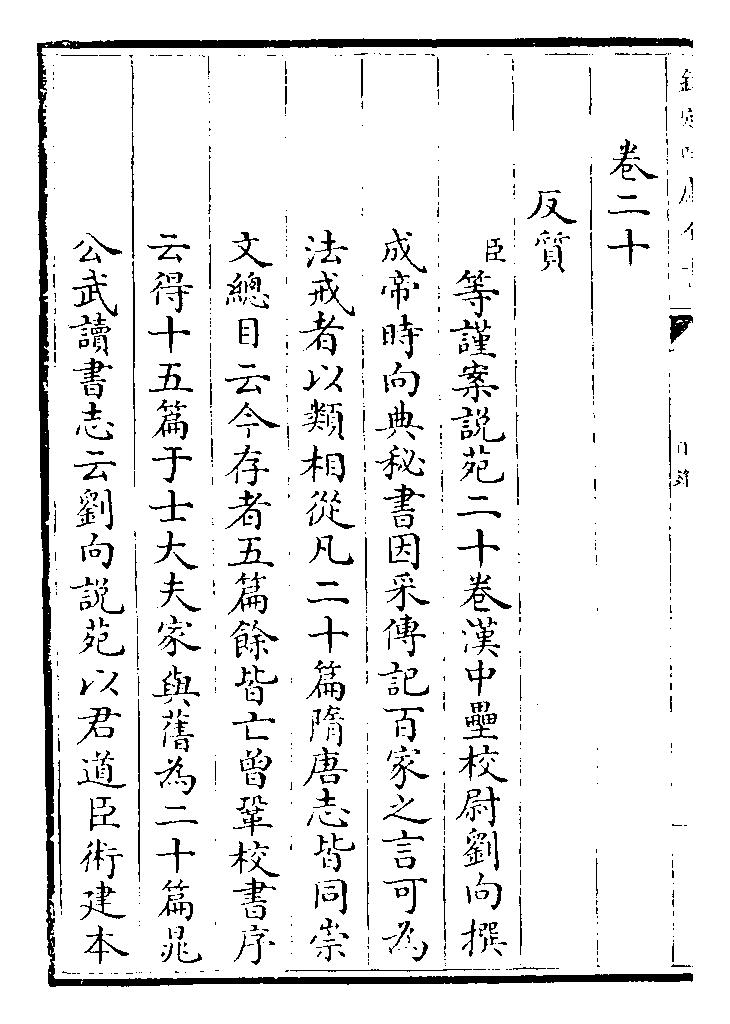 卷二十
反質
臣等謹案説苑二十卷漢中壘校尉劉向撰
成帝時向典秘書因采傳記百家之言可為
法戒者以類相從凡二十篇隋唐志皆同崇
文總目云今存者五篇餘皆亡曾鞏校書序
云得十五篇于士大夫家與舊為二十篇晁
公武讀書志云劉向説苑以君道臣術建本